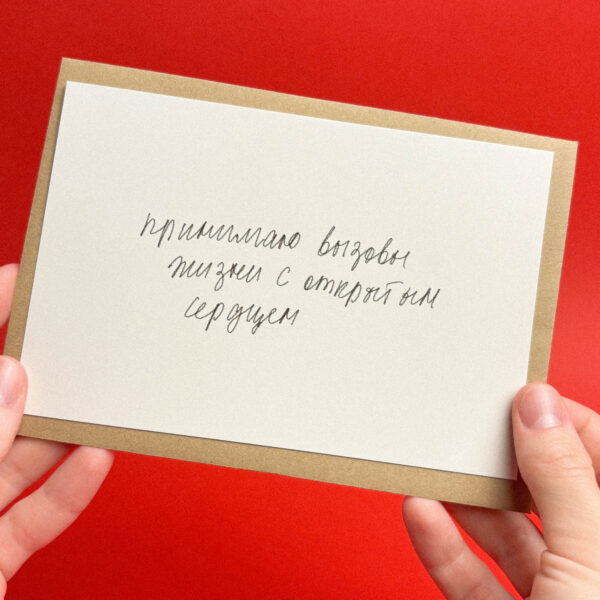 принимаю вызовы
жизни с открытым
сердцем